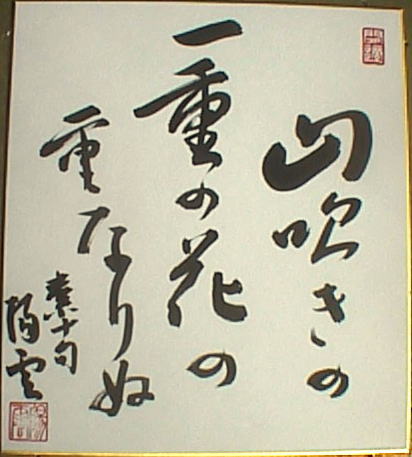 山吹きの
一重の花の
重なりぬ
素十句